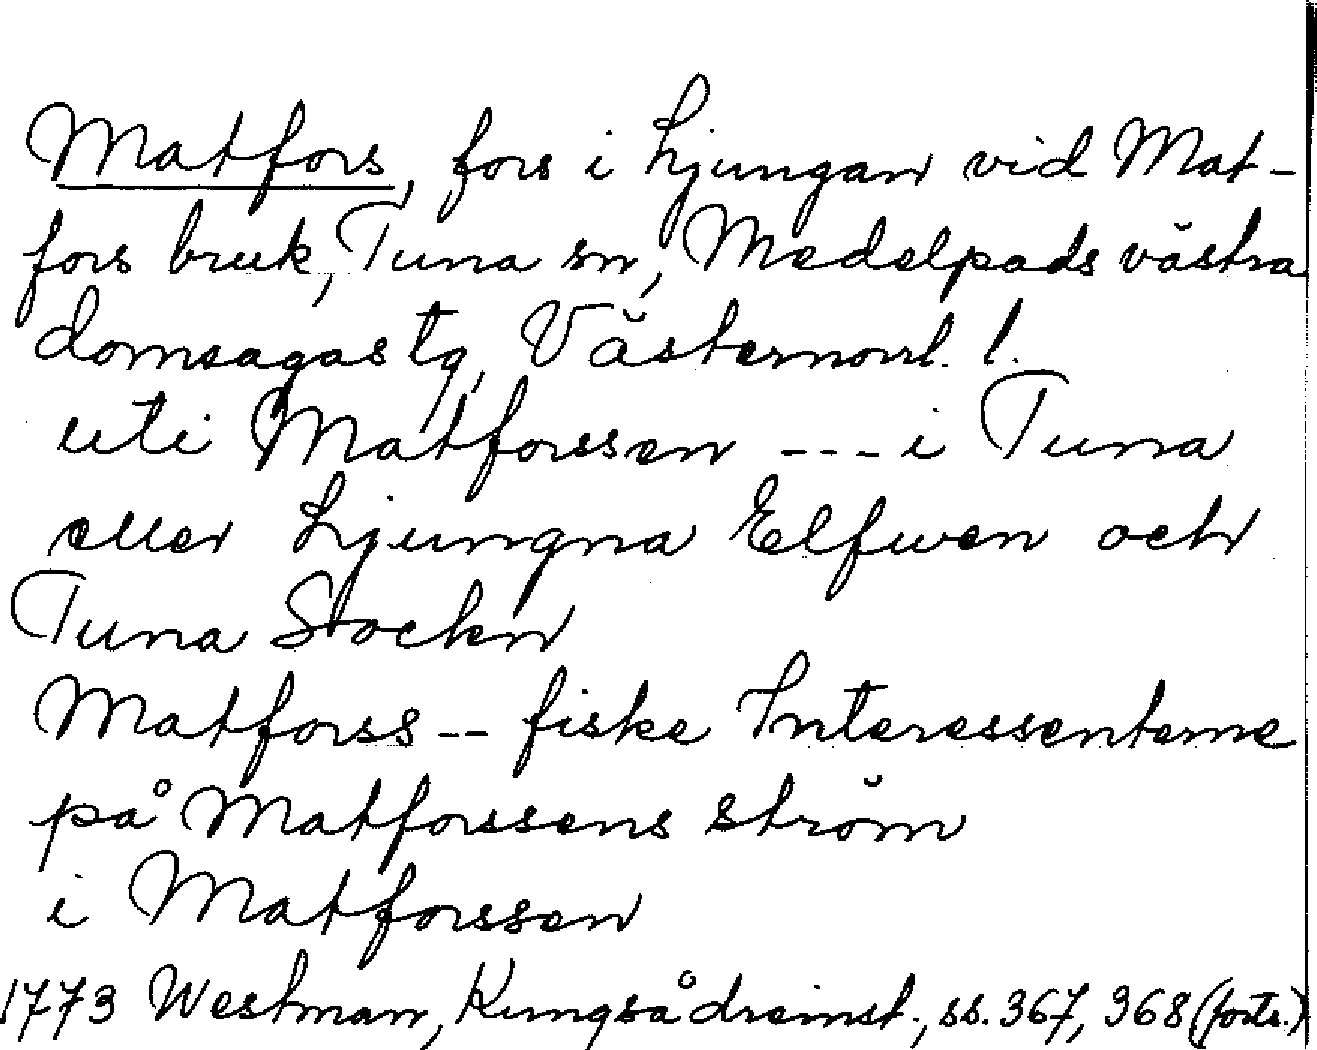 Matfors, fors i Ljungan vid Mat-
fors bruk, Tuna sn, Medelpads västra
domsagas tg, Västernorrl. l.
uti Matforssen --- i Tuna
eller Ljungna Elfwen och
Tuna Sockn
Matforss -- fiske Interessenterne
på Matforssens ström
i Matforssen
1773 Westman, Kungsådreinst., ss. 367, 368 (forts.)